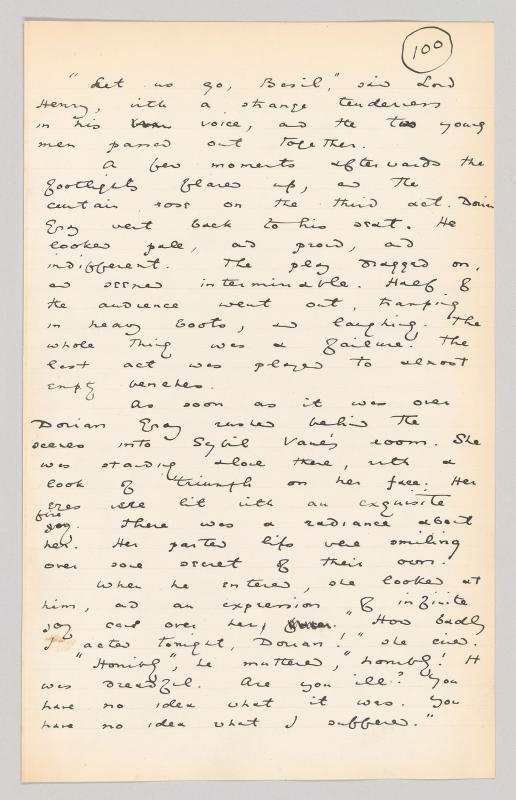 100
"Let us go, Basil," said Lord
Henry, with a strange tenderness
in his voice, and the two young
men passed out together.
A few moments afterwards the
footlights flared up, and the
curtain rose on the third act. Dorian
Gray went back to his seat. He
looked pale, and proud, and
indifferent. The play dragged on,
and seemed interminable. Half of
the audience went out, tramping
in heavy boots, and laughing. The
whole thing was a failure. The
last act was played to almost
empty benches.
As soon as it was over
Dorian Gray rushed behind the
scenes into Sybil Vane's room. She
was standing alone there, with a
look of triumph on her face. Her
eyes were lit with an exquisite
fire
joy. There was a radiance about
her. Her parted lips were smiling
over some secret of their own.
When he entered, she looked at
him, and an expression of infinite
joy came over her, "How badly
I acted tonight, Dorian!" she cried.
"Horribly", he muttered, "horribly! It
was dreadful. Are you ill? You
have no idea what it was. You
have no idea what I suffered."